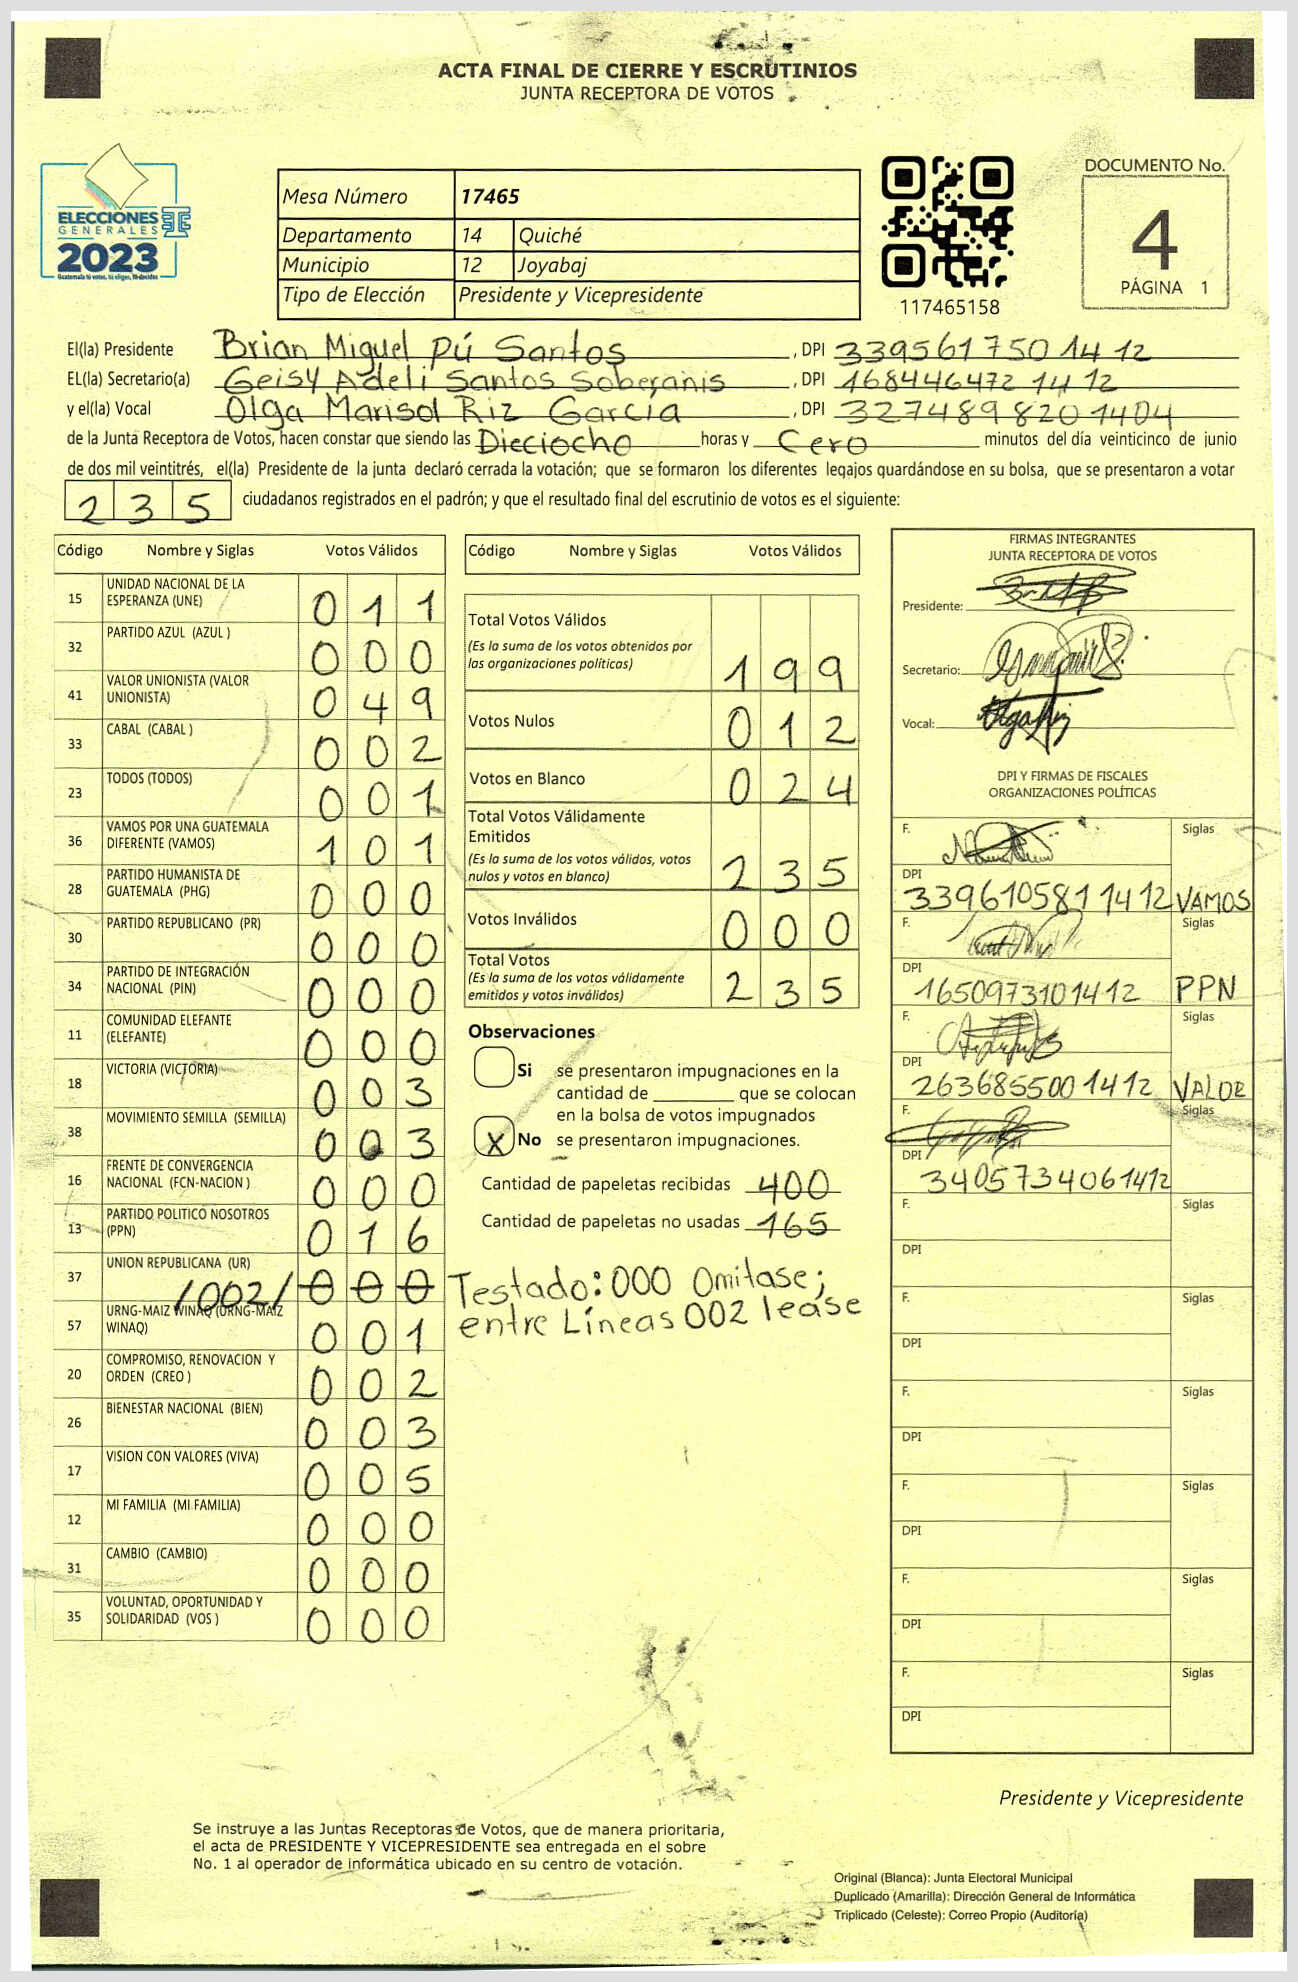 ACTA FINAL DE CIERRE Y ESCRUTINIOS
JUNTA RECEPTORA DE VOTOS
ELECCIONES
GENERALES
2023
Guatemala tú votas, tú eliges, tú decides
Mesa Número 17465
Departamento 14 Quiché
Municipio 12 Joyabaj
Tipo de Elección Presidente y Vicepresidente
117465158
DOCUMENTO No.
4
PÁGINA 1
El(la) Presidente Brian Miguel Pú Santos , DPI 3395617501412
EL(la) Secretario(a) Geisy Adeli Santos Soberanis , DPI 1684464721412
y el(la) Vocal Olga Marisol Riz García , DPI 3274898201404
de la Junta Receptora de Votos, hacen constar que siendo las Dieciocho horas y Cero minutos del día veinticinco de junio
de dos mil veintitrés, el(la) Presidente de la junta declaró cerrada la votación; que se formaron los diferentes legajos guardándose en su bolsa, que se presentaron a votar
235 ciudadanos registrados en el padrón; y que el resultado final del escrutinio de votos es el siguiente:
Código Nombre y Siglas Votos Válidos
15 UNIDAD NACIONAL DE LA
ESPERANZA (UNE) 011
32 PARTIDO AZUL (AZUL ) 000
41 VALOR UNIONISTA (VALOR
UNIONISTA) 049
33 CABAL (CABAL ) 002
23 TODOS (TODOS) 001
36 VAMOS POR UNA GUATEMALA
DIFERENTE (VAMOS) 101
28 PARTIDO HUMANISTA DE
GUATEMALA (PHG) 000
30 PARTIDO REPUBLICANO (PR) 000
34 PARTIDO DE INTEGRACIÓN
NACIONAL (PIN) 000
11 COMUNIDAD ELEFANTE
(ELEFANTE) 000
18 VICTORIA (VICTORIA) 003
38 MOVIMIENTO SEMILLA (SEMILLA) 003
16 FRENTE DE CONVERGENCIA
NACIONAL (FCN-NACION ) 000
13 PARTIDO POLITICO NOSOTROS
(PPN) 016
37 UNION REPUBLICANA (UR) /002/ 000
57 URNG-MAIZ WINAQ (URNG-MAIZ
WINAQ) 001
20 COMPROMISO, RENOVACION Y
ORDEN (CREO ) 002
26 BIENESTAR NACIONAL (BIEN) 003
17 VISION CON VALORES (VIVA) 005
12 MI FAMILIA (MI FAMILIA) 000
31 CAMBIO (CAMBIO) 000
35 VOLUNTAD, OPORTUNIDAD Y
SOLIDARIDAD (VOS ) 000
Código Nombre y Siglas Votos Válidos
Total Votos Válidos
(Es la suma de los votos obtenidos por
las organizaciones políticas) 199
Votos Nulos 012
Votos en Blanco 024
Total Votos Válidamente
Emitidos
(Es la suma de los votos válidos, votos
nulos y votos en blanco) 235
Votos Inválidos 000
Total Votos
(Es la suma de los votos válidamente
emitidos y votos inválidos) 235
Observaciones
Si se presentaron impugnaciones en la
cantidad de ________ que se colocan
en la bolsa de votos impugnados
X No se presentaron impugnaciones.
Cantidad de papeletas recibidas 400
Cantidad de papeletas no usadas 165
Testado: 000 Omitase;
entre Líneas 002 lease
FIRMAS INTEGRANTES
JUNTA RECEPTORA DE VOTOS
Presidente:
Secretario:
Vocal:
DPI Y FIRMAS DE FISCALES
ORGANIZACIONES POLÍTICAS
F. Siglas
DPI
3396105811412 VAMOS
F. Siglas
DPI
1650973101412 PPN
F. Siglas
DPI
2636855001412 VALOR
F. Siglas
DPI
3405734061412
F. Siglas
DPI
F. Siglas
DPI
F. Siglas
DPI
F. Siglas
DPI
F. Siglas
DPI
F. Siglas
DPI
Presidente y Vicepresidente
Se instruye a las Juntas Receptoras de Votos, que de manera prioritaria,
el acta de PRESIDENTE Y VICEPRESIDENTE sea entregada en el sobre
No. 1 al operador de informática ubicado en su centro de votación.
Original (Blanca): Junta Electoral Municipal
Duplicado (Amarilla): Dirección General de Informática
Triplicado (Celeste): Correo Propio (Auditoría)